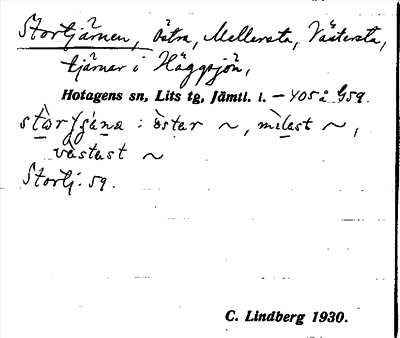 Stortjärnen, östra, Mellersta, Västersta,
tjärnar i Häggsjön,
Hotagens sn, Lits tg, Jämtl. l. – 405 å G59.
: öster ~, milast ~,
västast ~
Stortj. 59.
C. Lindberg 1930.